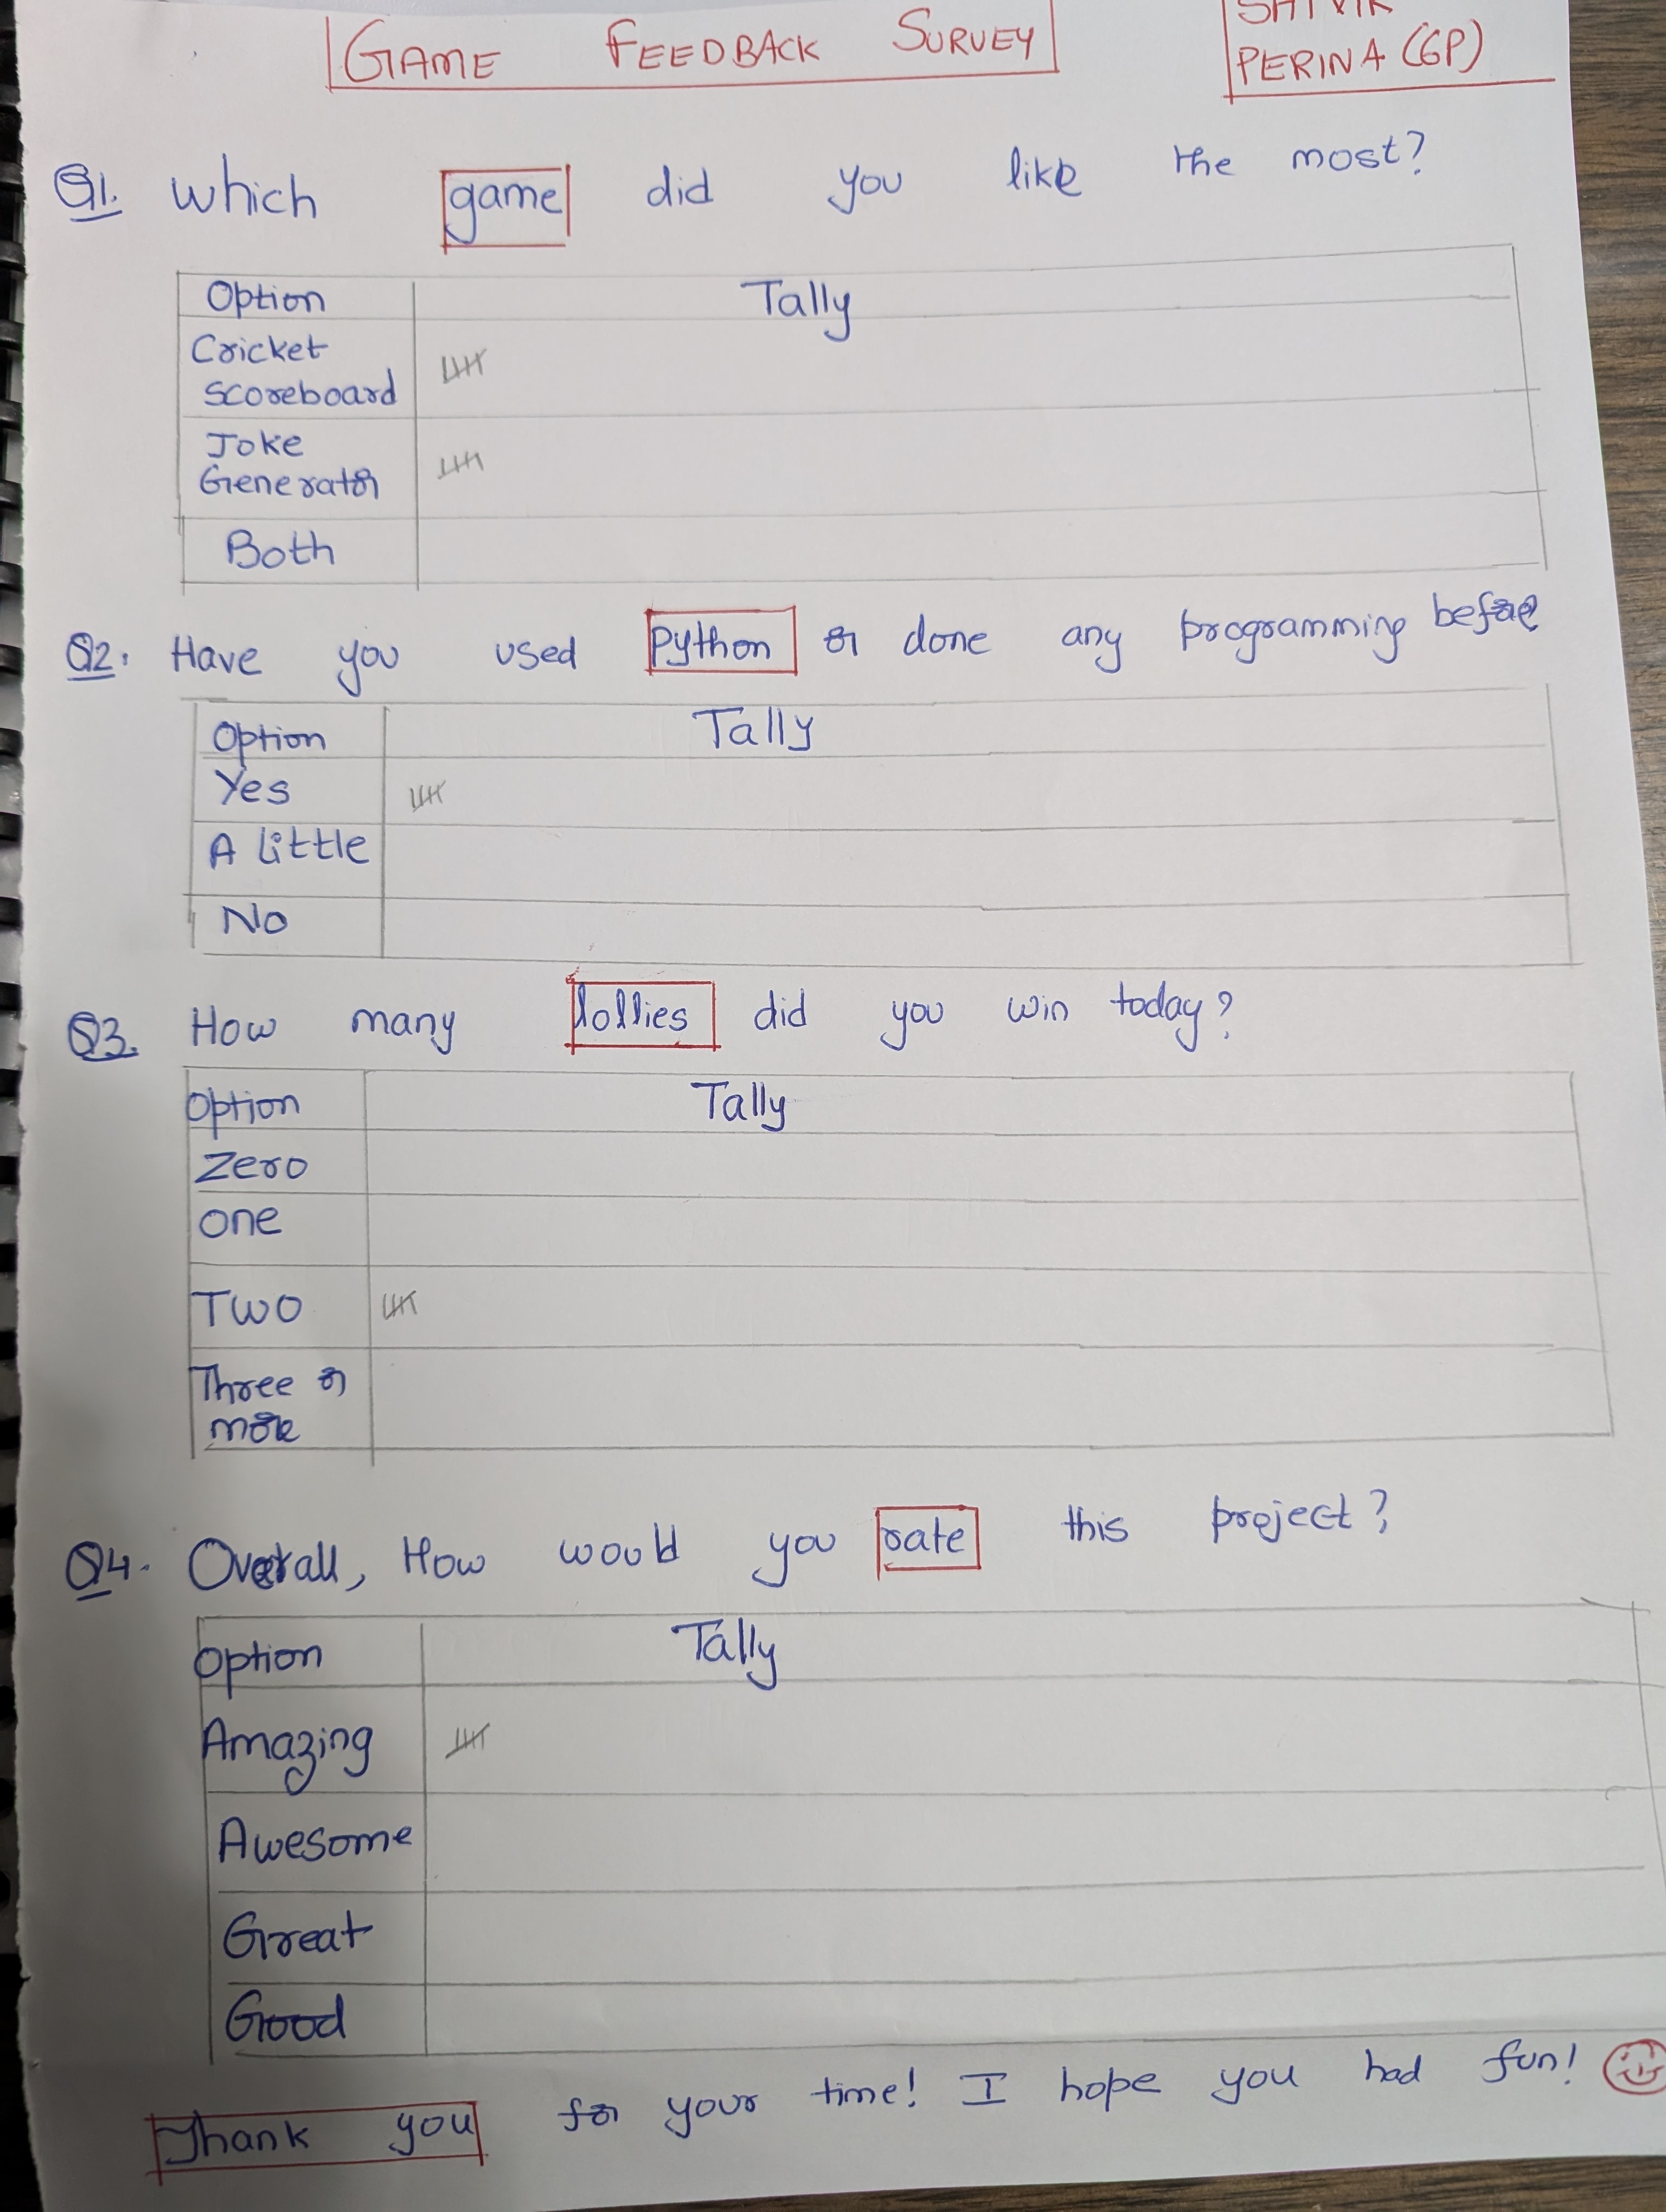 GAME FEEDBACK SURVEY
PERINA (GP)
Q1. Which game did you like the most?
Option Tally
Cricket
Scoreboard
Joke
Generator
Both
Q2. Have you used Python or done any programming before
Option Tally
Yes
A little
No
Q3. How many lollies did you win today?
Option Tally
Zero
One
Two
Three or
more
Q4. Overall, How would you rate this project?
Option Tally
Amazing
Awesome
Great
Good
Thank you for your time! I hope you had fun!